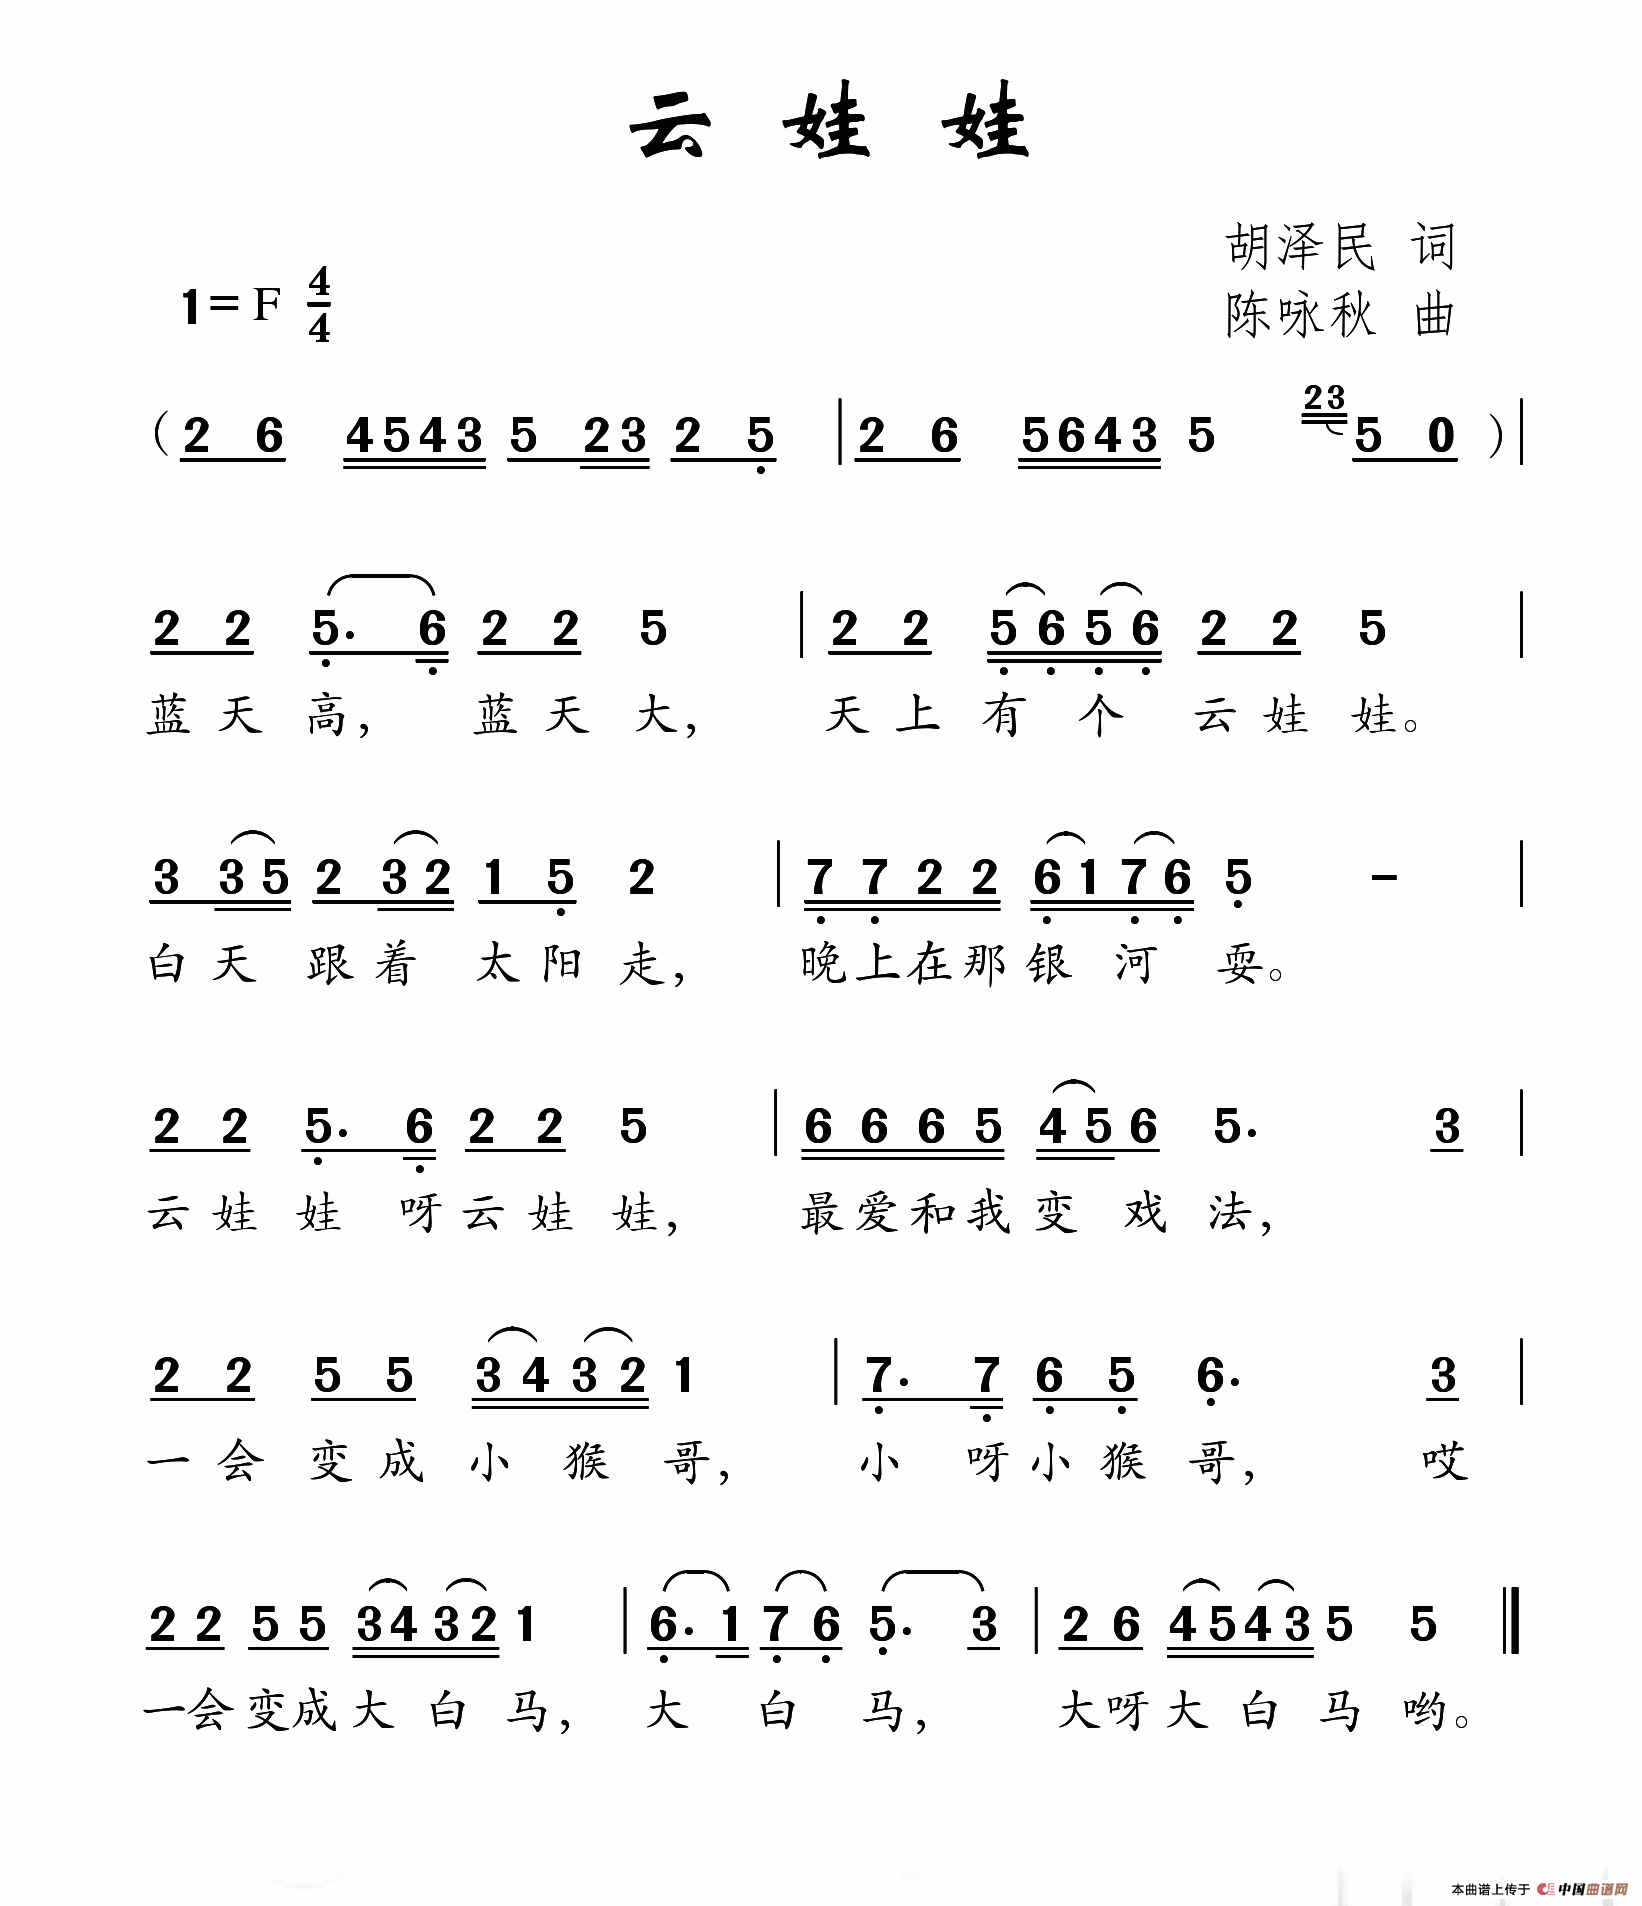 云娃娃
胡泽民 词
1=F 4/4
陈咏秋 曲
23
(2 6 4543 5 23 2 5 | 2 6 5643 5 5 0 ) |
2 2 5. 6 2 2 5 | 2 2 5 6 5 6 2 2 5 |
蓝天高， 蓝天大， 天上有个云娃娃。
3 3 5 2 3 2 1 5 2 | 7 7 2 2 6 1 7 6 5 - |
白天跟着太阳走， 晚上在那银河耍。
2 2 5. 6 2 2 5 | 6 6 6 5 4 5 6 5. 3 |
云娃娃呀云娃娃， 最爱和我变戏法，
2 2 5 5 3 4 3 2 1 | 7. 7 6 5 6. 3 |
一会变成小猴哥， 小呀小猴哥， 哎
2 2 5 5 3 4 3 2 1 | 6. 1 7 6 5. 3 | 2 6 4 5 4 3 5 5 ‖
一会变成大白马， 大白马， 大呀大白马哟。
本曲谱上传于 中国曲谱网